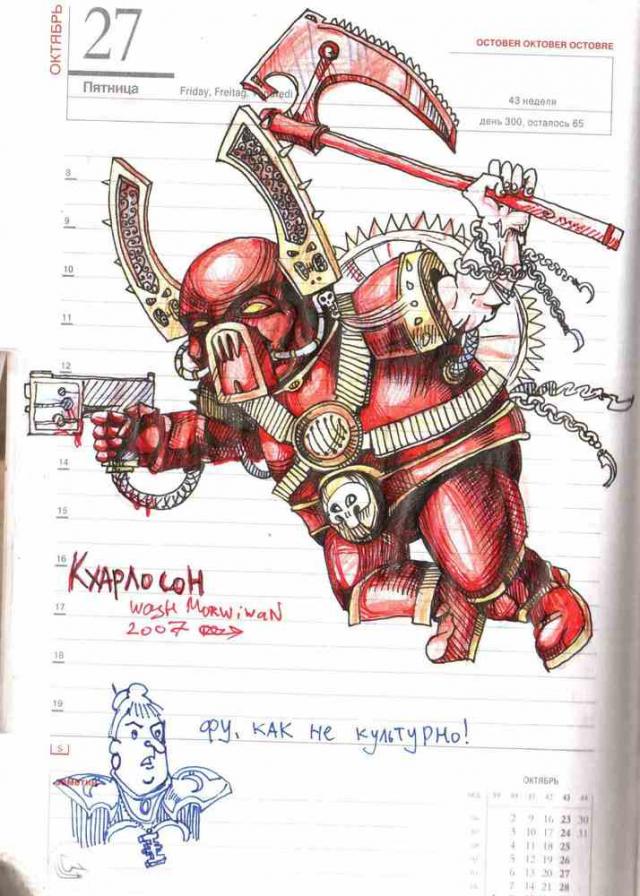 ОКТЯБРЬ
27
Пятница
Friday, Freitag,
OCTOBER OKTOBER OCTOBRE
43 неделя
день 300, осталось 65
8
9
10
11
12
14
15
16
17
18
19
КХАРЛОСОН
WASH MORWIWAN
2007
ФУ, КАК НЕ КУЛЬТУРНО!
S
ОКТЯБРЬ
39 40 41 42 43 44
2 9 16 23 30
3 10 17 24 31
4 11 18 25
5 12 19 26
6 13 20 27
7 14 21 28